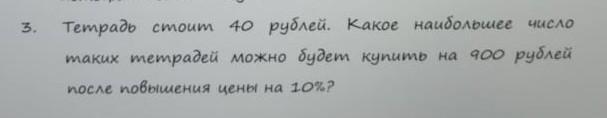 3. Тетрадь стоит 40 рублей. Какое наибольшее число
таких тетрадей можно будет купить на 900 рублей
после повышения цены на 10%?